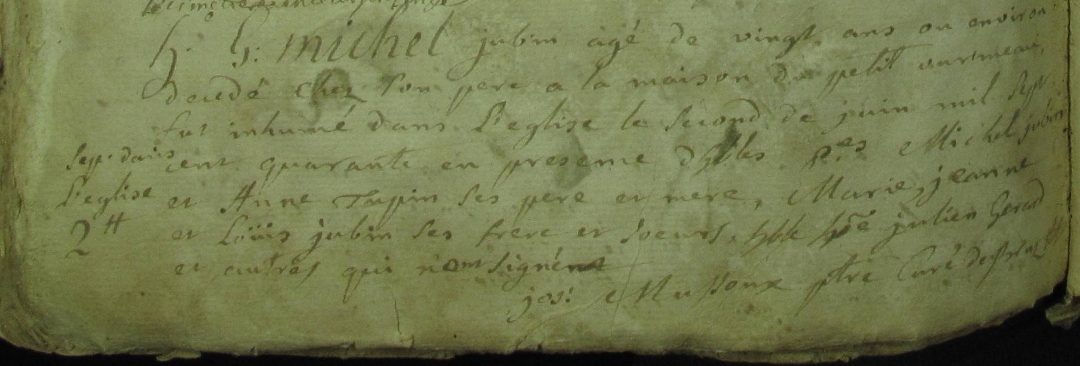 h. G: michel jubin âgé de vingt ans ou environ
decedé chez son pere a la maison du petit
fut inhumé dans L'eglise le second de juin mil sept
cent quarante en presence d' Michel jubin
et Anne Tapin ses pere et mere, Marie, jeanne
et Loüis jubin ses frere et soeurs, julien Gerard
et autres qui n'ont signé
Sep. dans
L'eglise
2 tt
jos: ptre Curé